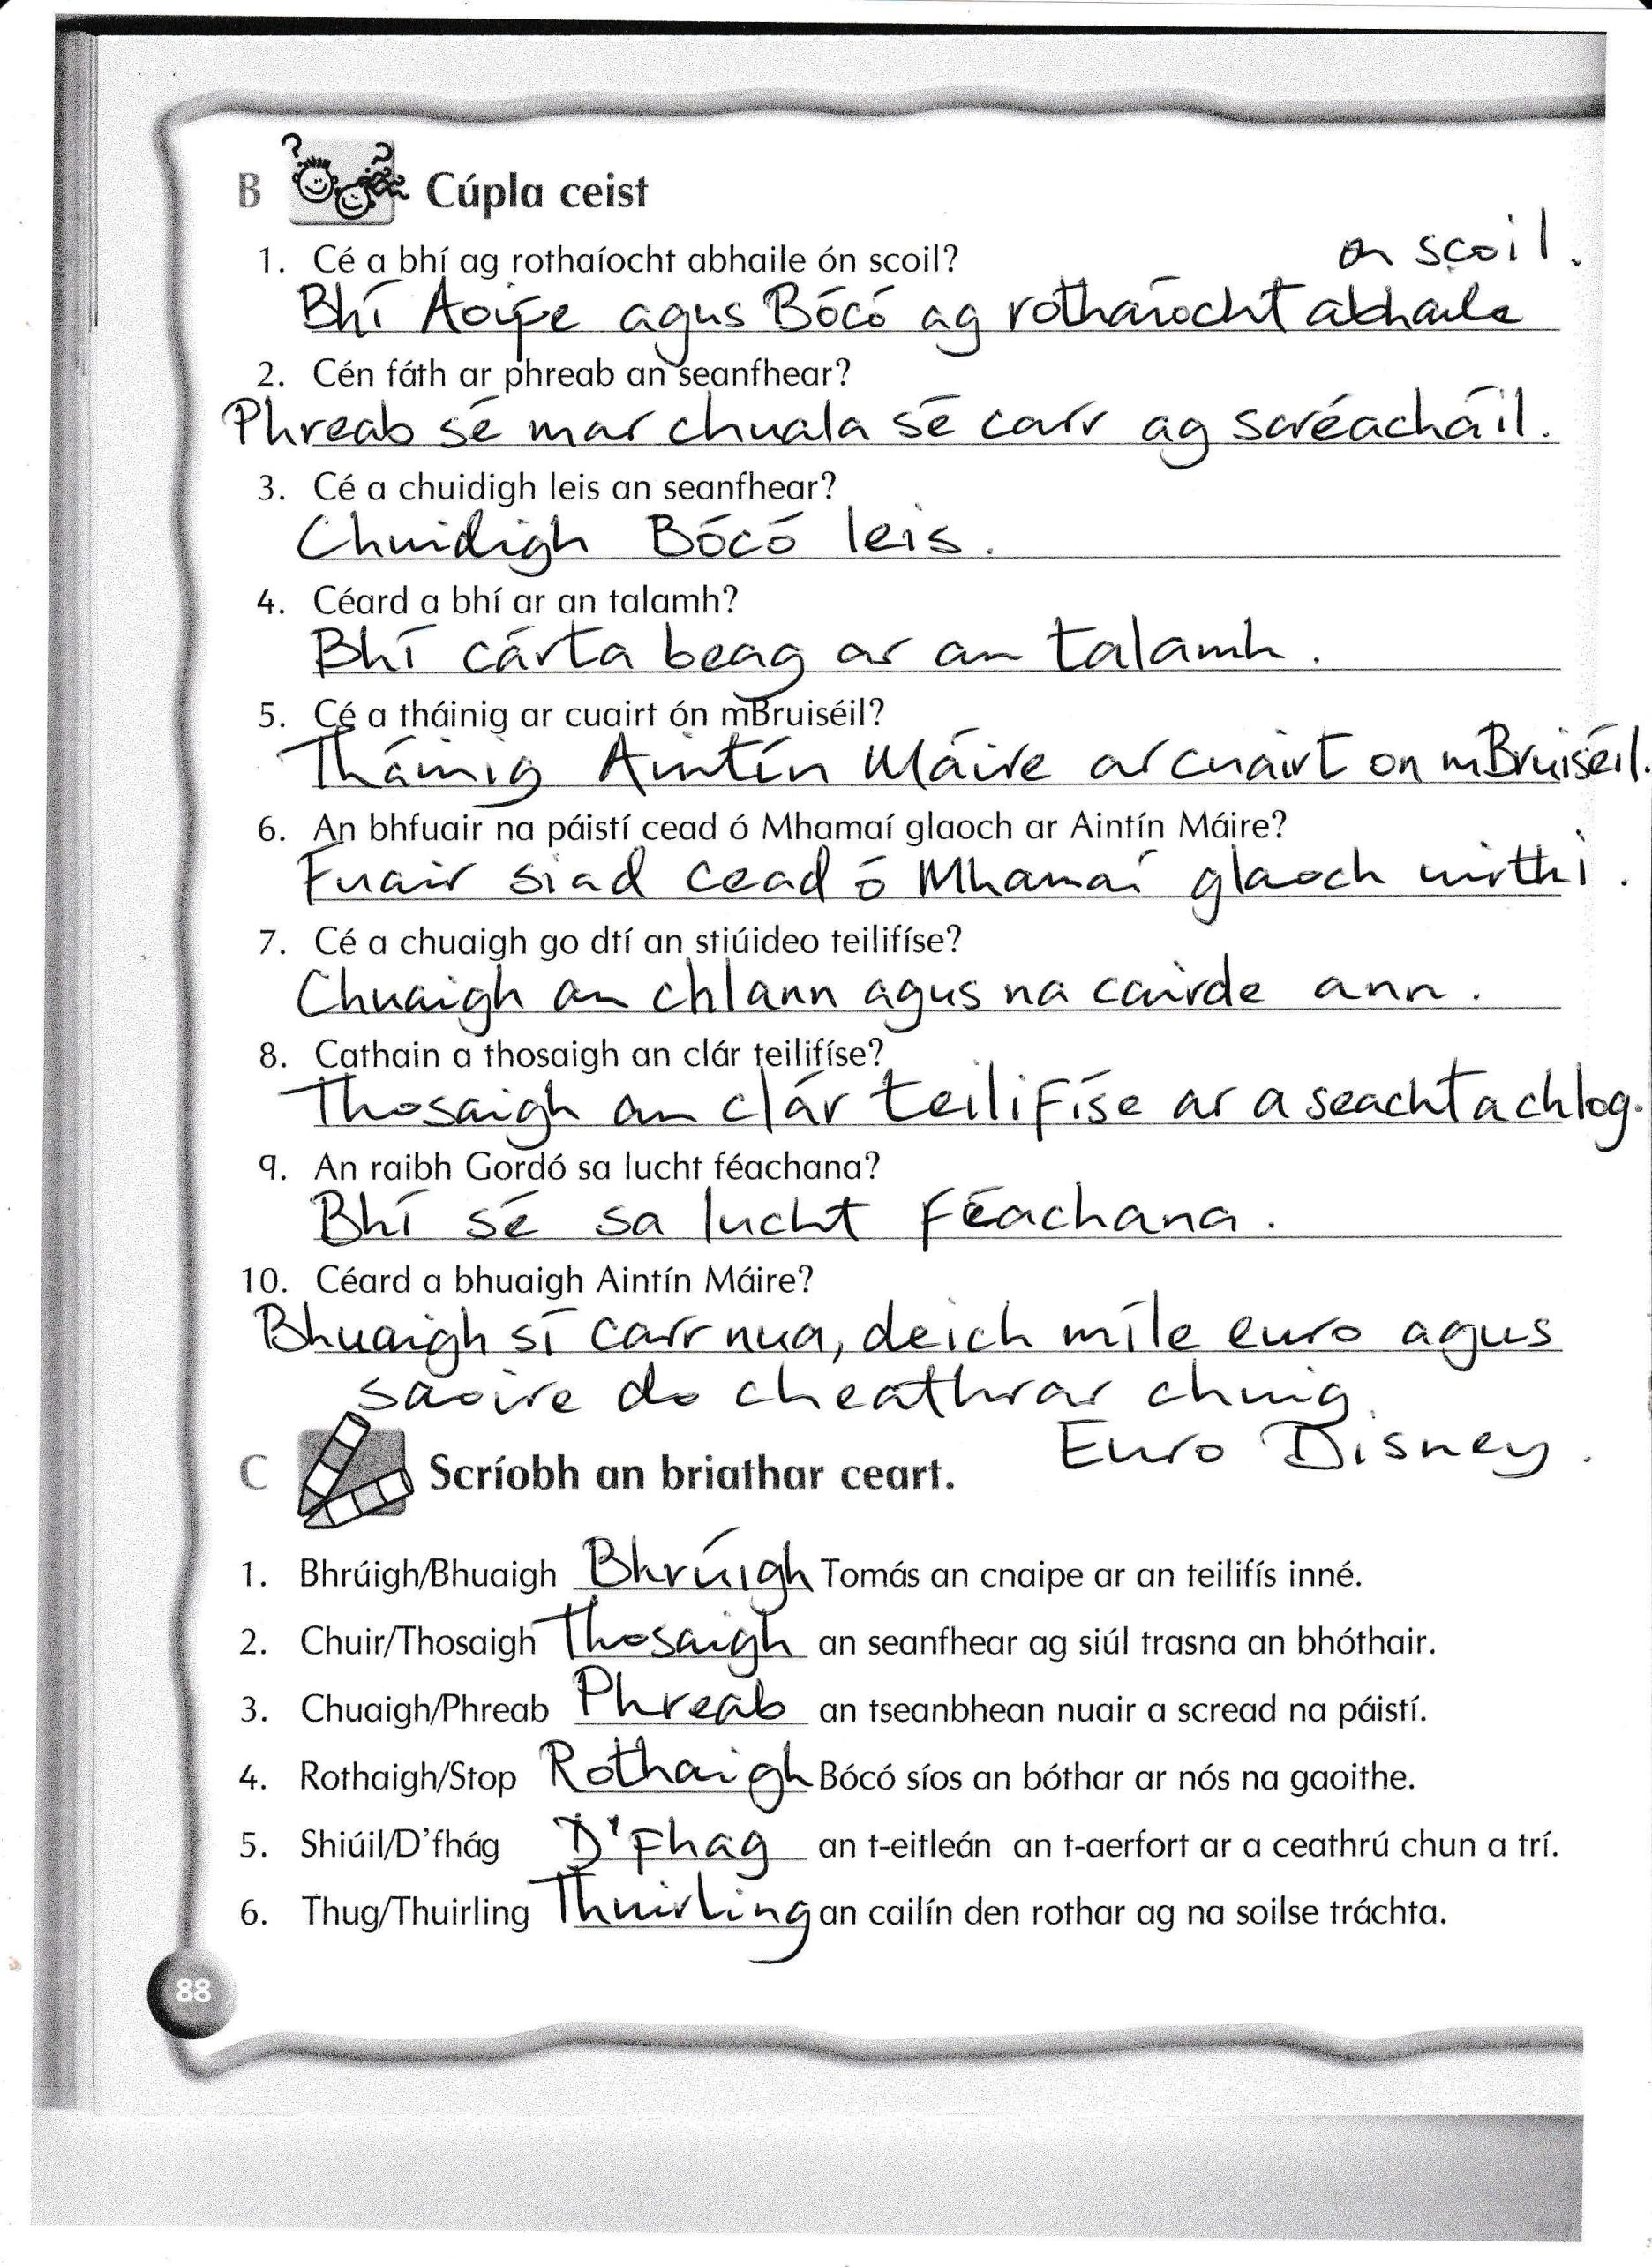 B Cúpla ceist
1. Cé a bhí ag rothaíocht abhaile ón scoil?
Bhí Aoife agus Bócó ag rothaíocht abhaile
on scoil.
2. Cén fáth ar phreab an seanfhear?
Phreab sé mar chuala sé carr ag scréacháil.
3. Cé a chuidigh leis an seanfhear?
Chuidigh Bócó leis.
4. Céard a bhí ar an talamh?
Bhí cárta beag ar an talamh.
5. Cé a tháinig ar cuairt ón mBruiséil?
Tháinig Aintín Máire ar cuairt on mBruiséil.
6. An bhfuair na páistí cead ó Mhamaí glaoch ar Aintín Máire?
Fuair siad cead ó Mhamaí glaoch uirthi.
7. Cé a chuaigh go dtí an stiúideo teilifíse?
Chuaigh an chlann agus na cairde ann.
8. Cathain a thosaigh an clár teilifíse?
Thosaigh an clár teilifíse ar a seacht a chlog.
9. An raibh Gordó sa lucht féachana?
Bhí sé sa lucht féachana.
10. Céard a bhuaigh Aintín Máire?
Bhuaigh sí carr nua, deich míle euro agus
saoire do cheathrar chuig
Euro Disney.
C Scríobh an briathar ceart.
1. Bhrúigh/Bhuaigh Bhrúigh Tomás an cnaipe ar an teilifís inné.
2. Chuir/Thosaigh Thosaigh an seanfhear ag siúl trasna an bhóthair.
3. Chuaigh/Phreab Phreab an tseanbhean nuair a scread na páistí.
4. Rothaigh/Stop Rothaigh Bócó síos an bóthar ar nós na gaoithe.
5. Shiúil/D'fhág D'fhag an t-eitleán an t-aerfort ar a ceathrú chun a trí.
6. Thug/Thuirling Thuirling an cailín den rothar ag na soilse tráchta.
88